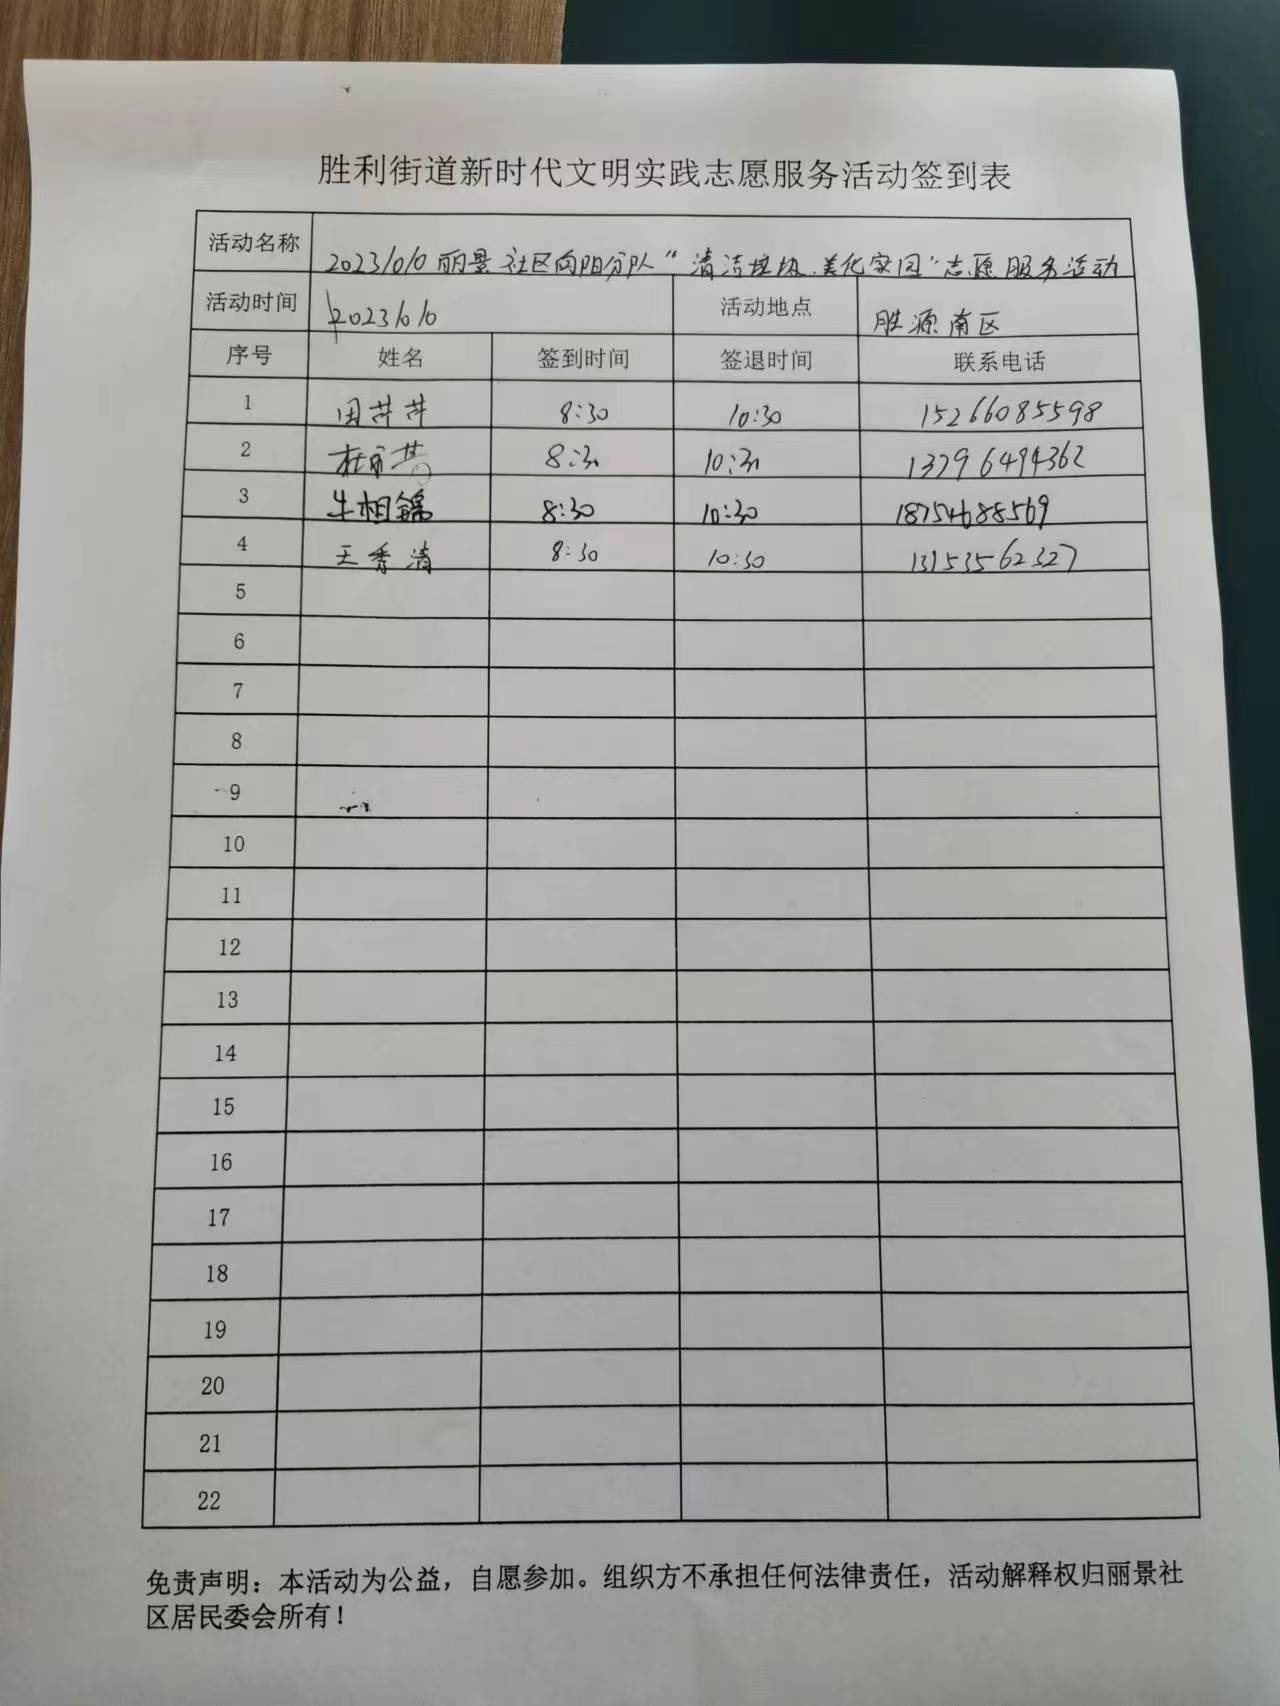 胜利街道新时代文明实践志愿服务活动签到表
活动名称 20231010丽景社区向阳分队“清洁垃圾.美化家园”志愿服务活动
活动时间 20231010 活动地点 胜源南区
序号 姓名 签到时间 签退时间 联系电话
1 田芹芹 8:30 10:30 15266085598
2 8:30 10:30 13796494362
3 牛相锦 8:30 10:30 18754688569
4 王秀清 8:30 10:30 13153562327
5
6
7
8
9
10
11
12
13
14
15
16
17
18
19
20
21
22
免责声明：本活动为公益，自愿参加。组织方不承担任何法律责任，活动解释权归丽景社
区居民委会所有！